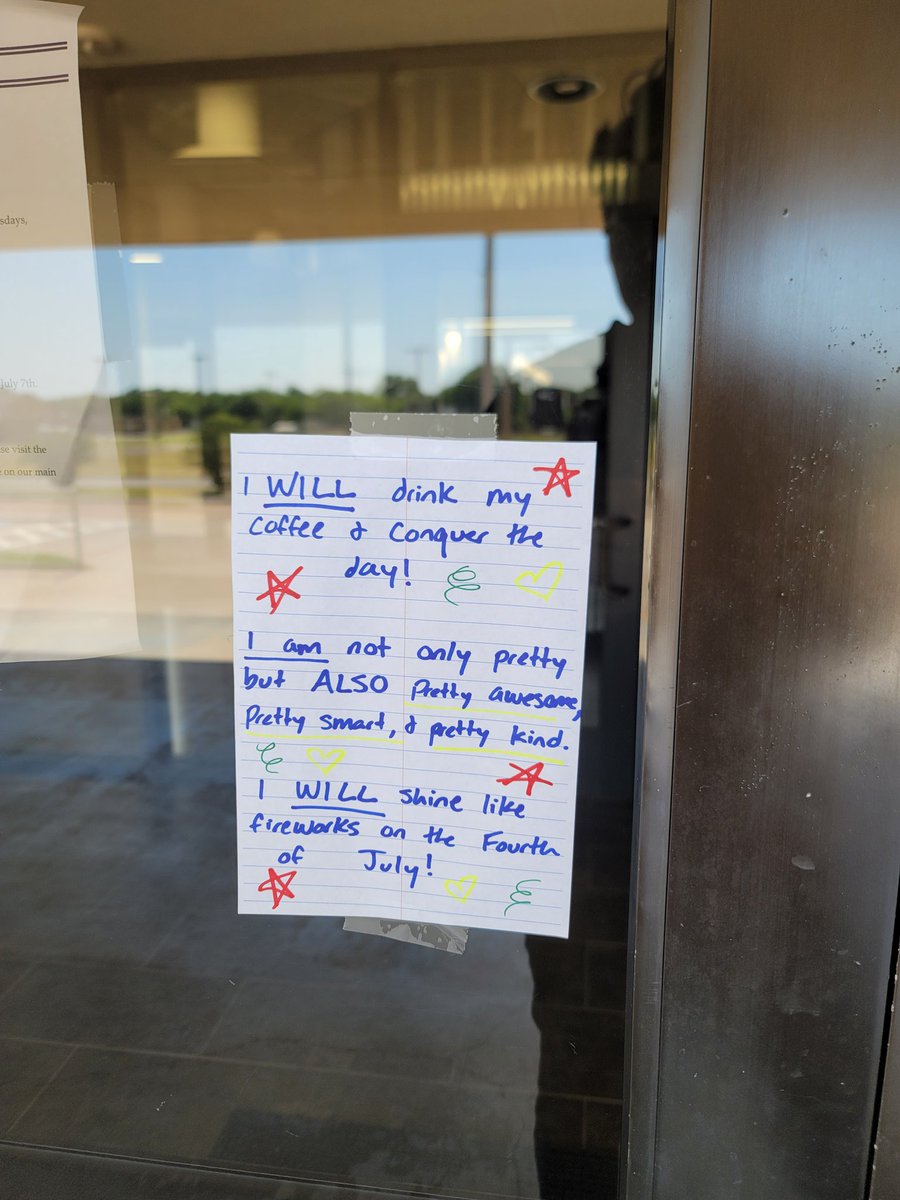 sdays,
July 7th.
se visit the
e on our main
I WILL drink my
coffee & conquer the
day!
I am not only pretty
but ALSO pretty awesome,
pretty smart, & pretty kind.
I WILL shine like
fireworks on the Fourth
of July!